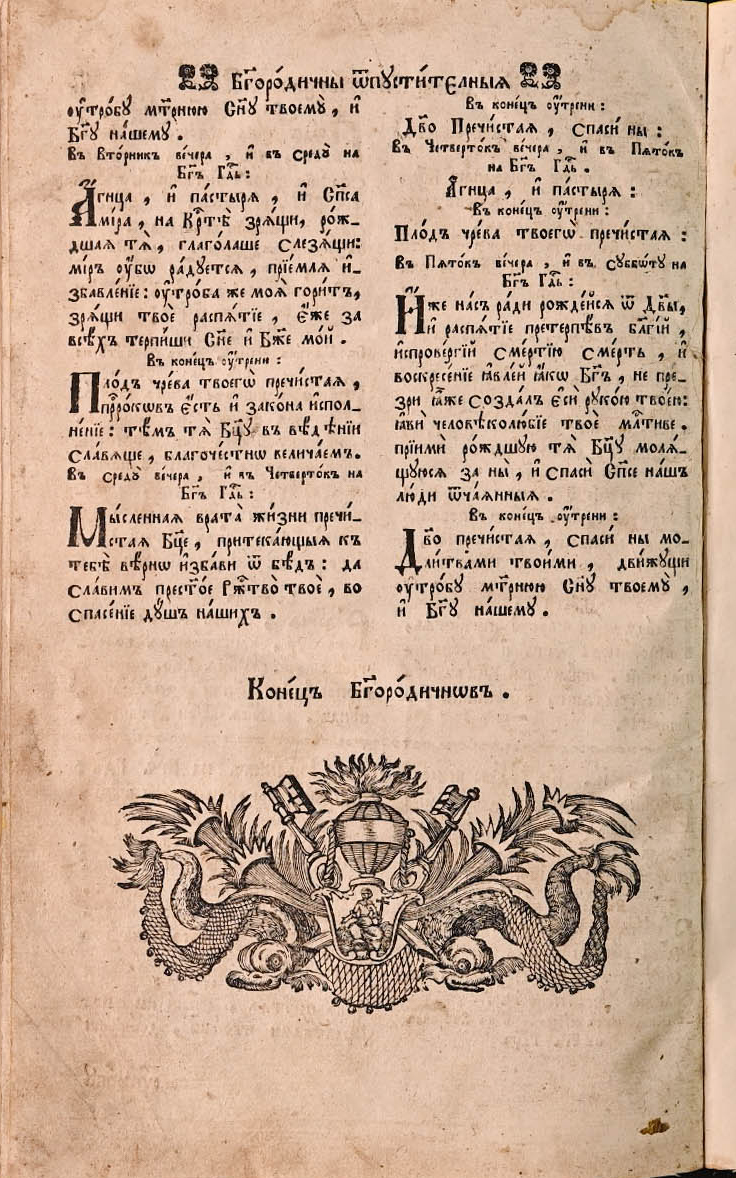 Бг҃оро́дичны ѿпусти́телныѧ
ѹ҆тро́бу мт҃рнюю Сн҃у твоему̀ , и҆
Бг҃у на́шему .
Въ Вто́рникъ ве́чера , и҆ въ средꙋ̀ на
Бг҃ъ Гдⷭ҇ь :
А҆́гнца , и҆ па́стырѧ , и҆ Сп҃са
мі́ра , на Крⷭ҇тѣ̀ зрѧ́щи, ро́ж-
дшаѧ тѧ̀ , глаго́лаше слезѧ́щи:
мі́ръ ѹ҆́бѡ ра́дуетсѧ , прїе́млѧ и҆-
збавле́нїе : ѹ҆тро́ба же моѧ̀ гори́тъ,
зрѧ́щи твоѐ распѧ́тїе , є҆́же за
всѣ́хъ терпи́ши Сн҃е и҆ Бж҃е мо́й .
Въ коне́цъ ѹ҆́трени :
Пло́дъ чре́ва твоегѡ̀ пречи́стаѧ ,
прⷪ҇ро́кѡвъ є҆́сть и҆ зако́на и҆спол-
не́нїе : тѣ́мъ тѧ̀ Бц҃у въ вѣ́дѣнїи
сла́вѧще , благоче́стнѡ велича́емъ.
Въ средꙋ̀ ве́чера , и҆ въ Четверто́къ на
Бг҃ъ Гдⷭ҇ь :
Мы́сленнаѧ врата̀ жи́зни пречи́-
стаѧ Бц҃е , притека́ющыѧ къ
тебѣ̀ вѣ́рнѡ и҆зба́ви ѿ бѣ́дъ : да
сла́вимъ прест҃о́е Рⷤ҇тво̀ твоѐ , во
спасе́нїе дꙋ́шъ на́шихъ .
Въ коне́цъ ѹ҆́трени :
Дв҃о Пречи́стаѧ , спаси́ ны :
Въ Четверто́къ ве́чера , и҆ въ Пѧто́къ
на Бг҃ъ Гдⷭ҇ь .
А҆́гнца , и҆ па́стырѧ :
Въ коне́цъ ѹ҆́трени :
Пло́дъ чре́ва твоегѡ̀ пречи́стаѧ :
Въ Пѧто́къ ве́чера , и҆ въ суббѡ́ту на
Бг҃ъ Гдⷭ҇ь :
И҆́же на́съ ра́ди рожде́йсѧ ѿ Дв҃ы,
и҆ распѧ́тїе претерпѣ́въ бл҃гі́й ,
и҆спрове́ргїй сме́ртїю сме́рть , и҆
воскресе́нїе ꙗ҆вле́й ꙗ҆́кѡ Бг҃ъ , не пре-
зри ꙗ҆̀же созда́лъ є҆сѝ рꙋко́ю твое́ю:
ꙗ҆вѝ человѣколю́бїе твоѐ млⷭ҇тиве .
прїимѝ ро́ждшую тѧ̀ Бц҃у молѧ́-
щуюсѧ за ны̀ , и҆ спасѝ Сп҃се на́шъ
лю́ди ѿча́ѧнныѧ .
Въ коне́цъ ѹ҆́трени :
Дв҃о пречи́стаѧ , спаси́ ны мо-
ли́твами твои́ми , дви́жущи
ѹ҆тро́бу мт҃рнюю Сн҃у твоему̀ ,
и҆ Бг҃у на́шему .
Коне́цъ Бг҃оро́дичнѡвъ .